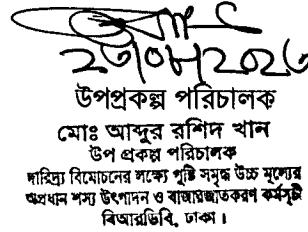 ২৩/০৮/২০২৩
উপপ্রকল্প পরিচালক
মোঃ আব্দুর রশিদ খান
উপ প্রকল্প পরিচালক
দারিদ্র্য বিমোচনের লক্ষ্যে পুষ্টি সমৃদ্ধ উচ্চ মূল্যের
অপ্রধান শস্য উৎপাদন ও বাজারজাতকরণ কর্মসূচী
বিআরডিবি, ঢাকা।